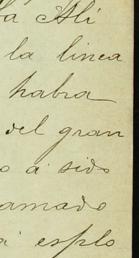 ta Ali
la linea
habra
del gran
o a sido
amado
a esplo